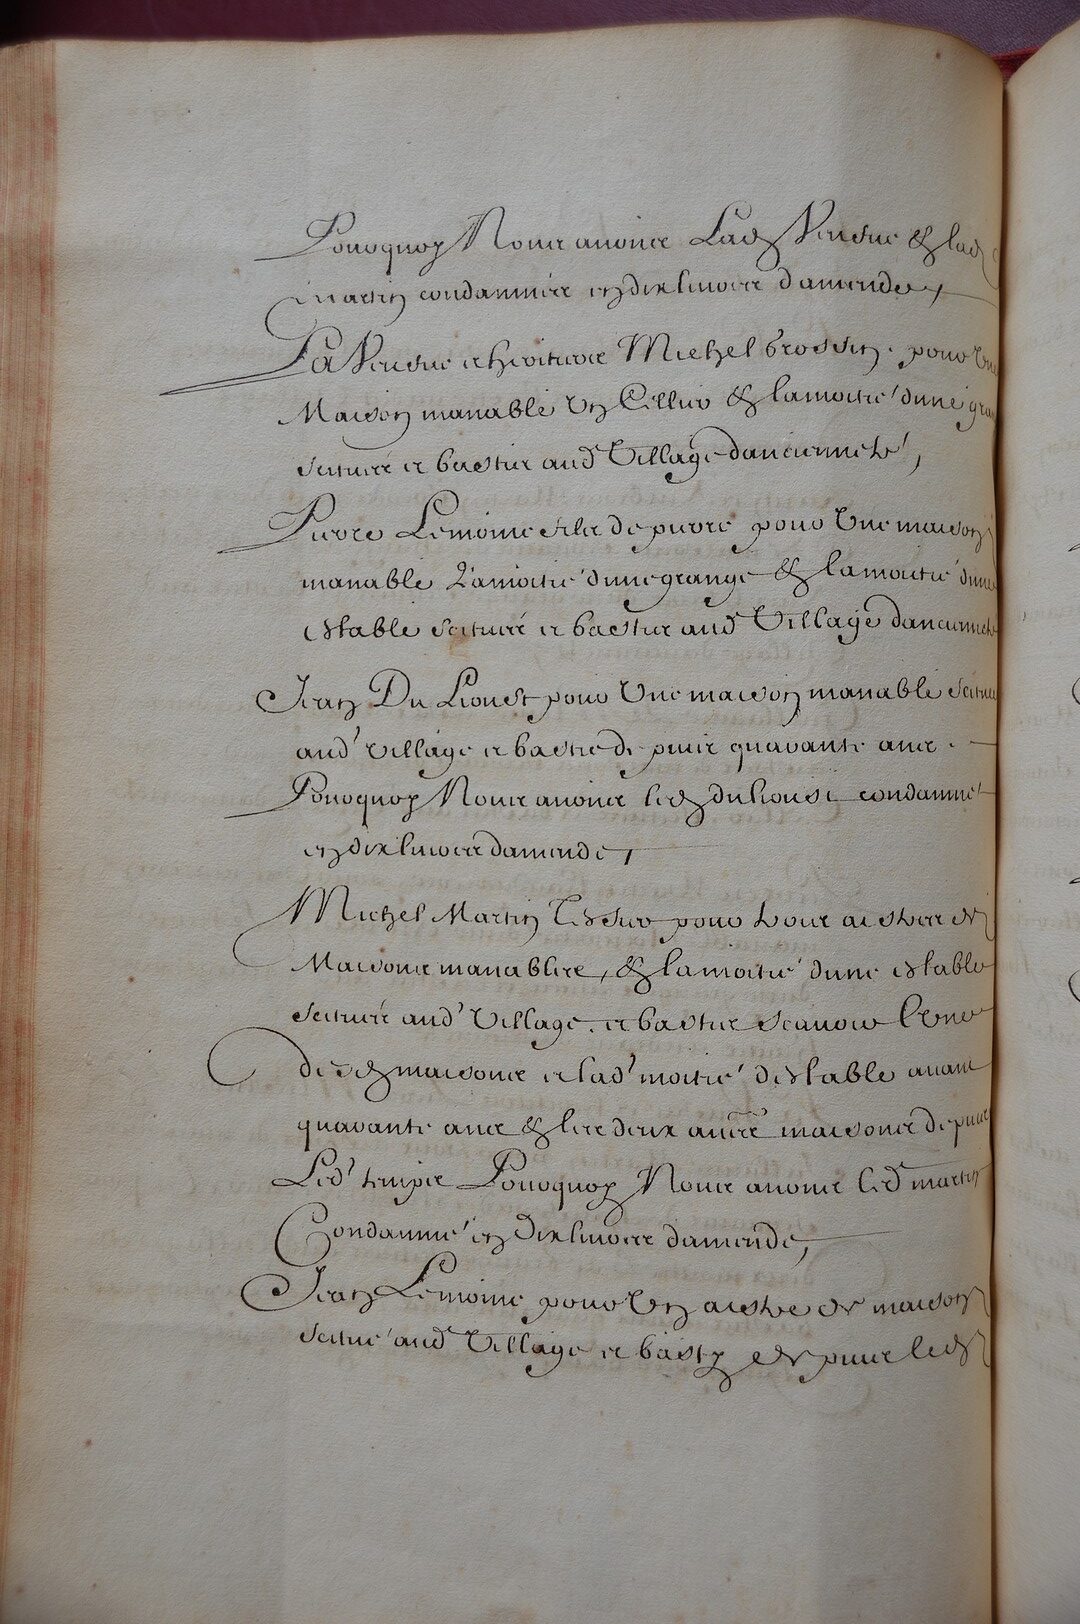 Pourquoy Nous avons Lad Veufve & lad
Martin condamnée en dix livres d'amende,
La Veufve et heritiers Michel Brossin pour une
Maison manable un Cellier & la moitié d'une gran
scituez et bastie aud Village d'ancienneté,
Pierre Lemoine fils de pierre pour Une maison
manable La moitié d'une grange & la moitié d'une
estable scituez et bastie aud Village d'ancienneté
Jean Du Lioust pour Une maison manable scituée
aud village et bastie depuis quarante ans
Pourquoy Nous avons led du lioust condamné
en dix livres d'amende,
Michel Martin Tessier pour trois aistres de
Maisons manables, & la moitié d'une estable
scituez aud Village et bastie scavoir l'une
desd maisons et lad moitié d'estable avant
quarante ans & les deux autres maisons depuis
Led temps Pourquoy Nous avons led martin
Condamné en Dix livres d'amende,
Jean Lemoine pour Un aistre de maison
scitué aud Village et basty depuis led